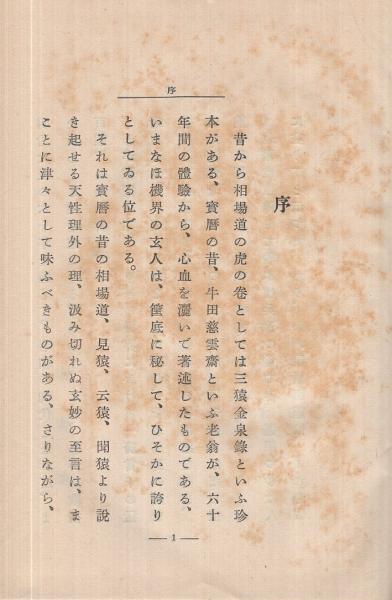 序
序
昔から相場道の虎の巻としては三猿金泉錄といふ珍
本がある、寳曆の昔、牛田慈雲齋といふ老翁が、六十
年間の體驗から、心血を灑いで著述したものである、
いまなほ機界の玄人は、筐底に秘して、ひそかに誇り
としてゐる位である。
それは寳曆の昔の相場道、見猿、云猿、聞猿より說
き起せる天性理外の理、汲み切れぬ玄妙の至言は、ま
ことに津々として味ふべきものがある、さりながら、
— 1 —